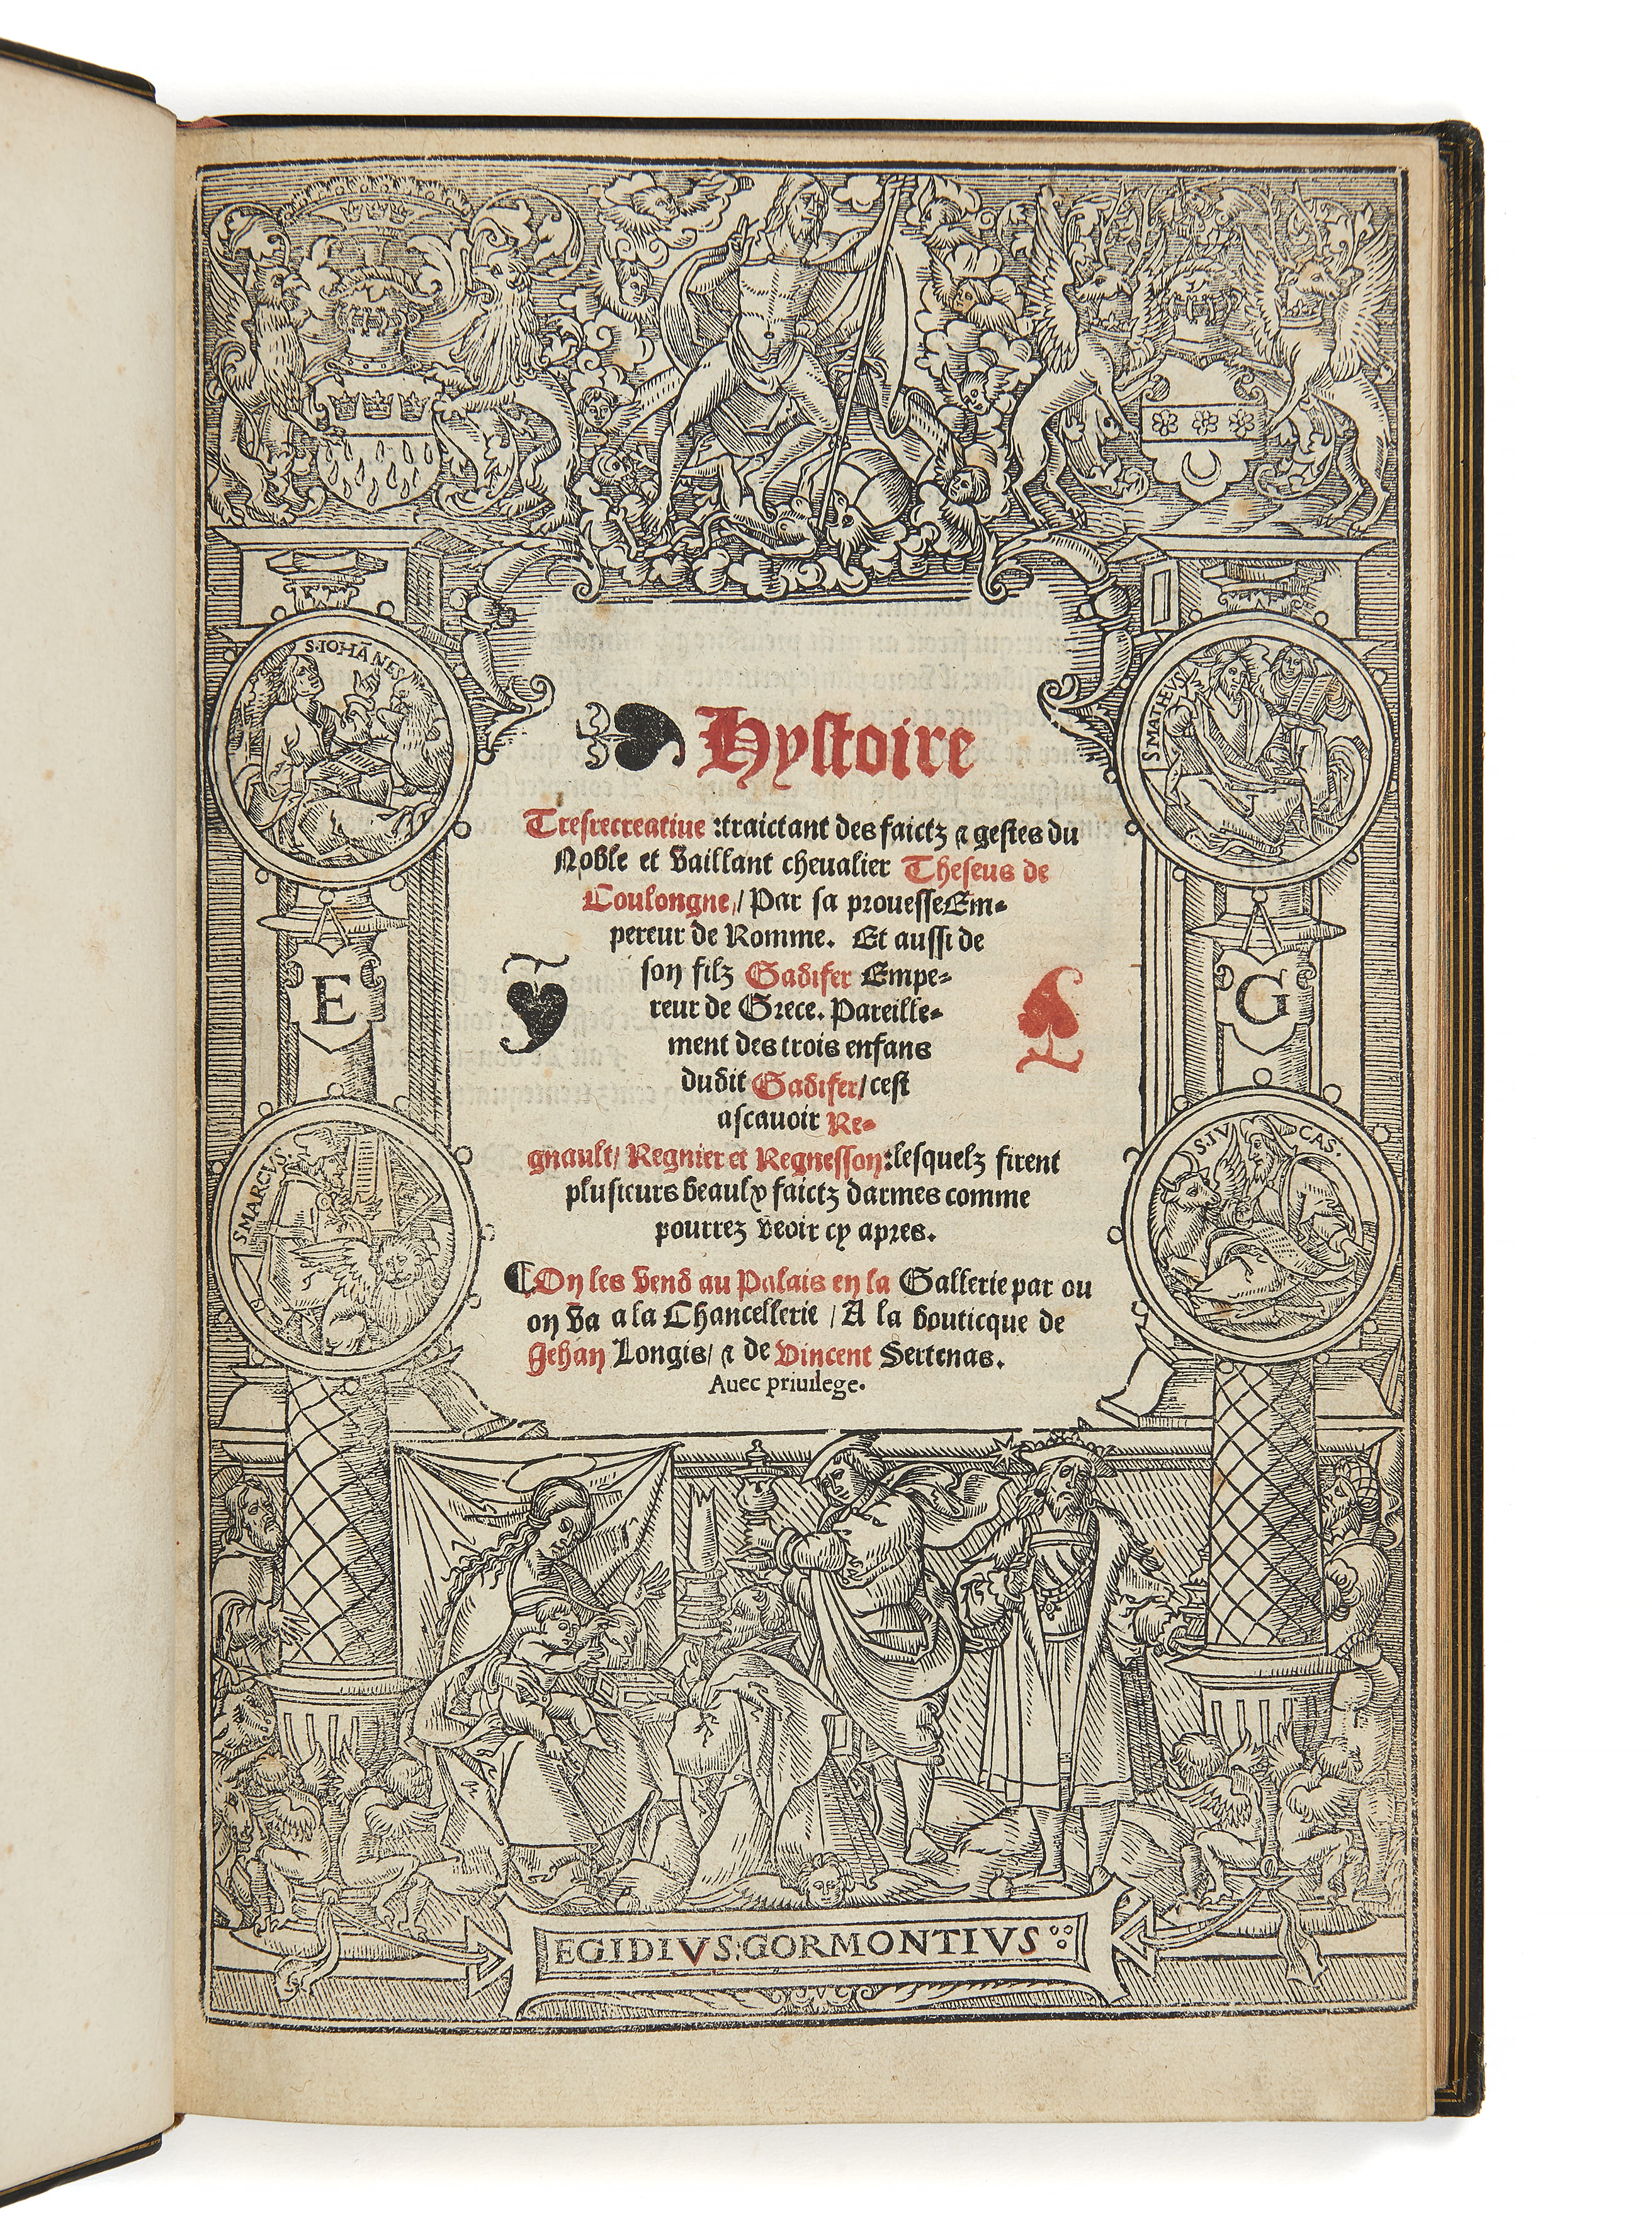 Hystoire
Tresrecreatiue :traictant des faictz ⁊ gestes du
Noble et vaillant cheualier Theseus de
Coulongne/ Par sa prouesse Em-
pereur de Romme. Et aussi de
son filz Gadifer Empe-
reur de Grece. Pareille-
ment des trois enfans
dudit Gadifer/ cest
ascauoir Re-
gnault/ Regnier et Regnesson:lesquelz firent
plusieurs beaulx faictz darmes comme
pourrez veoir cy apres.
¶On les vend au Palais en la Gallerie par ou
on va a la Chancellerie / A la bouticque de
Jehan Longis/ ⁊ de Vincent Sertenas.
Auec priuilege.
S.IOHANES
S.MATHEVS
E
G
S.MARCVS.
S.LVCAS.
EGIDIVS:GORMONTIVS